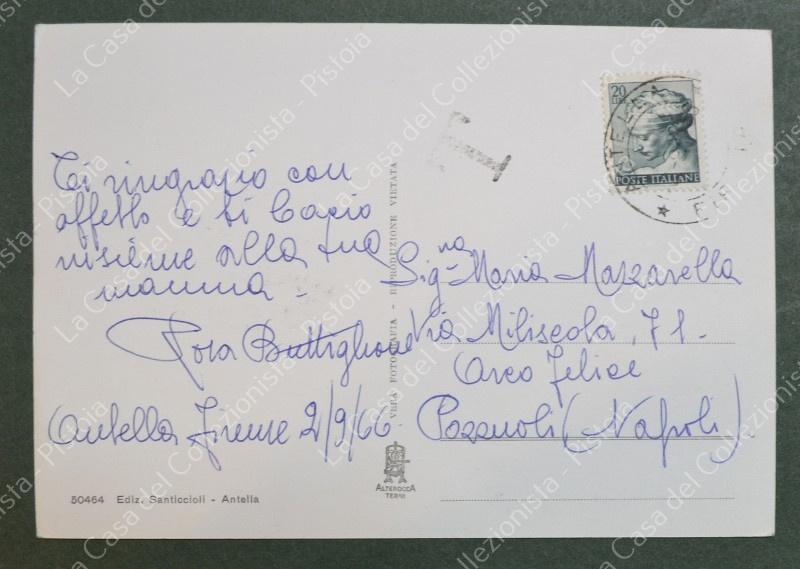 Ti ringrazio con
affetto e ti bacio
insieme alla tua
mamma -
Buttiglione
Antella Firenze 2/9/66
50464 Ediz. Santiccioli - Antella
VERA FOTOGRAFIA - RIPRODUZIONE VIETATA
ALTEROCCA
TERNI
T
20
LIRE
POSTE ITALIANE
ANTELLA
Sig.na Maria Mazzarella
Via Miliscola, 71.
Arco Felice
Pozzuoli (Napoli).
La Casa del Collezionista - Pistoia